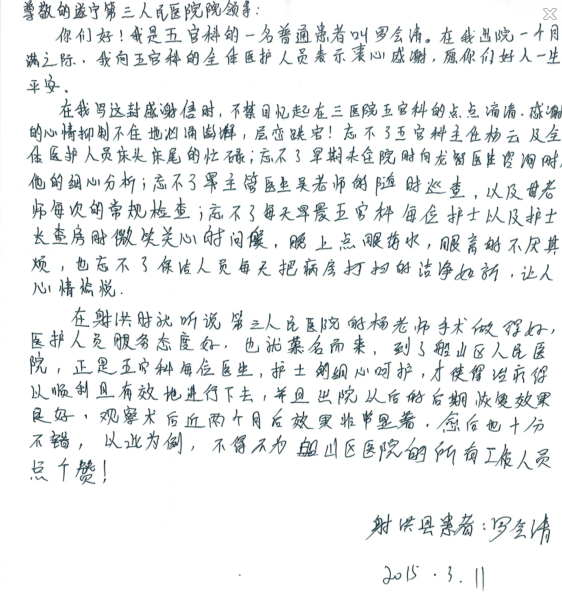 尊敬的遂宁第三人民医院院领导：
你们好！我是五官科的一名普通患者叫罗会清。在我出院一个月
满之际，我向五官科的全体医护人员表示衷心感谢，愿你们好人一生
平安。
在我写这封感谢信时，不禁回忆起在三医院五官科的点点滴滴。感谢
的心情抑制不住地汹涌澎湃，层峦跌宕！忘不了五官科主任杨云及全
体医护人员床头床尾的忙碌；忘不了早期未住院时向龙智医生咨询时，
他的细心分析；忘不了早主管医生吴老师的随时巡查，以及甘老
师每次的常规检查；忘不了每天早晨五官科每位护士以及护士
长查房时微笑关心的问候，晚上点眼药水，眼膏的不厌其
烦，也忘不了保洁人员每天把病房打扫的洁净如新，让人
心情愉悦．
在射洪时就听说第三人民医院的杨老师手术做得好，
医护人员服务态度好，也就慕名而来，到了船山区人民医
院，正是五官科每位医生，护士的细心呵护，才使得治疗得
以顺利且有效地进行下去，并且出院以后的后期恢复效果
良好．观察术后近两个月后效果非常显著．愈后也十分
不错，以此为例，不得不为船山区医院的所有工作人员
点个赞！
射洪县患者：罗会清
2015．3．11